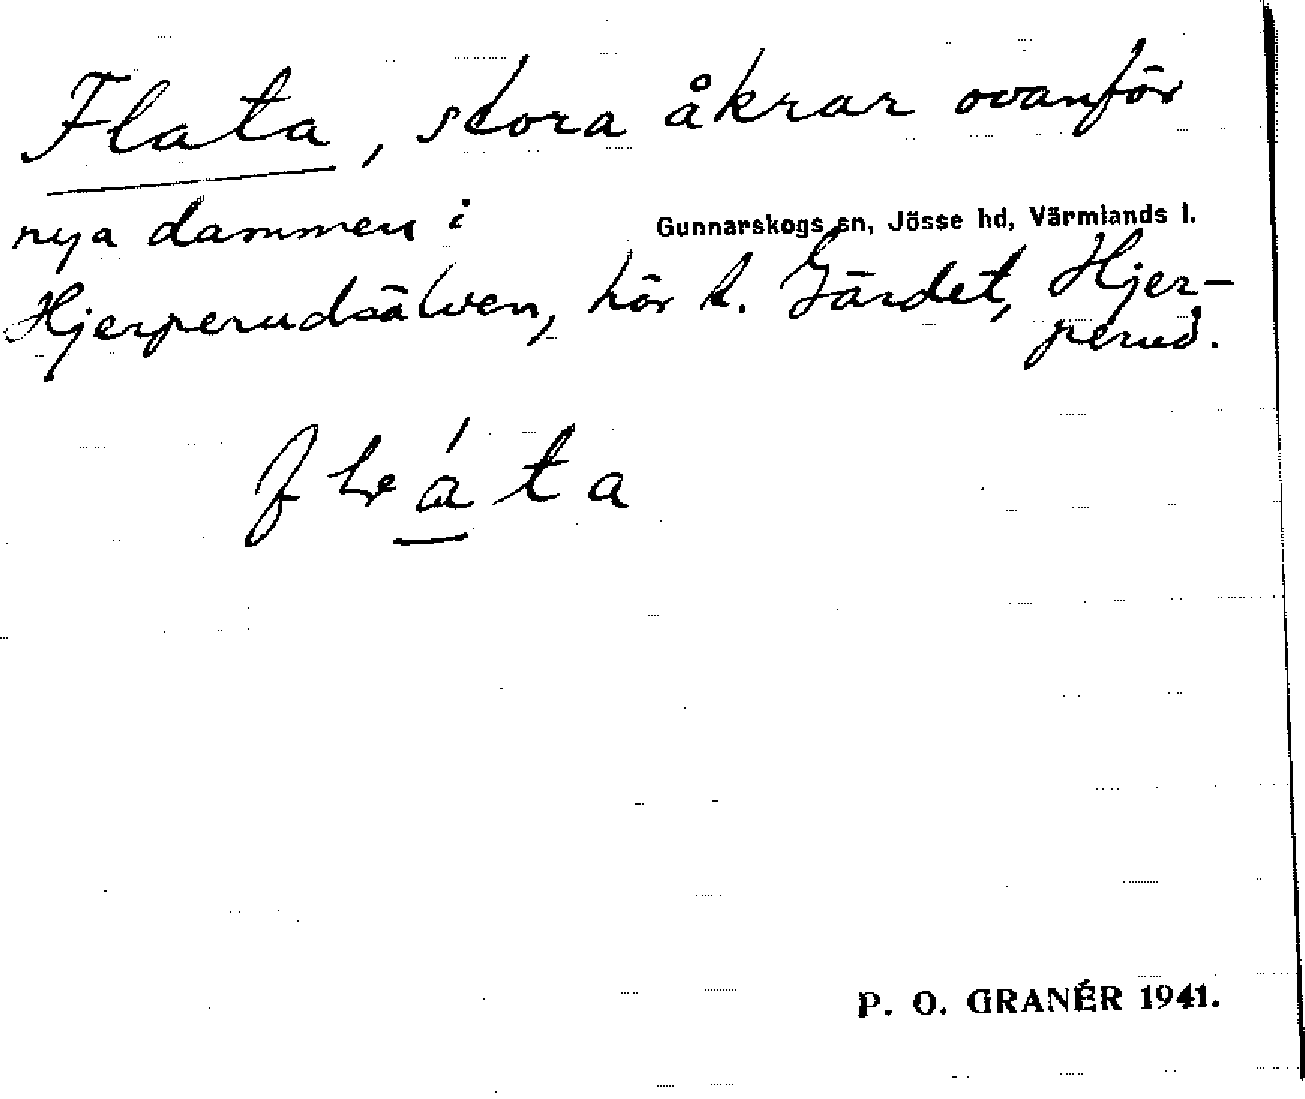 Flata, stora åkrar ovanför
nya dammen i
Gunnarskogs sn, Jösse hd, Värmlands l.
Hjerperudsälven, hör t. Gärdet, Hjer-
perud.
P. O. GRANÉR 1941.